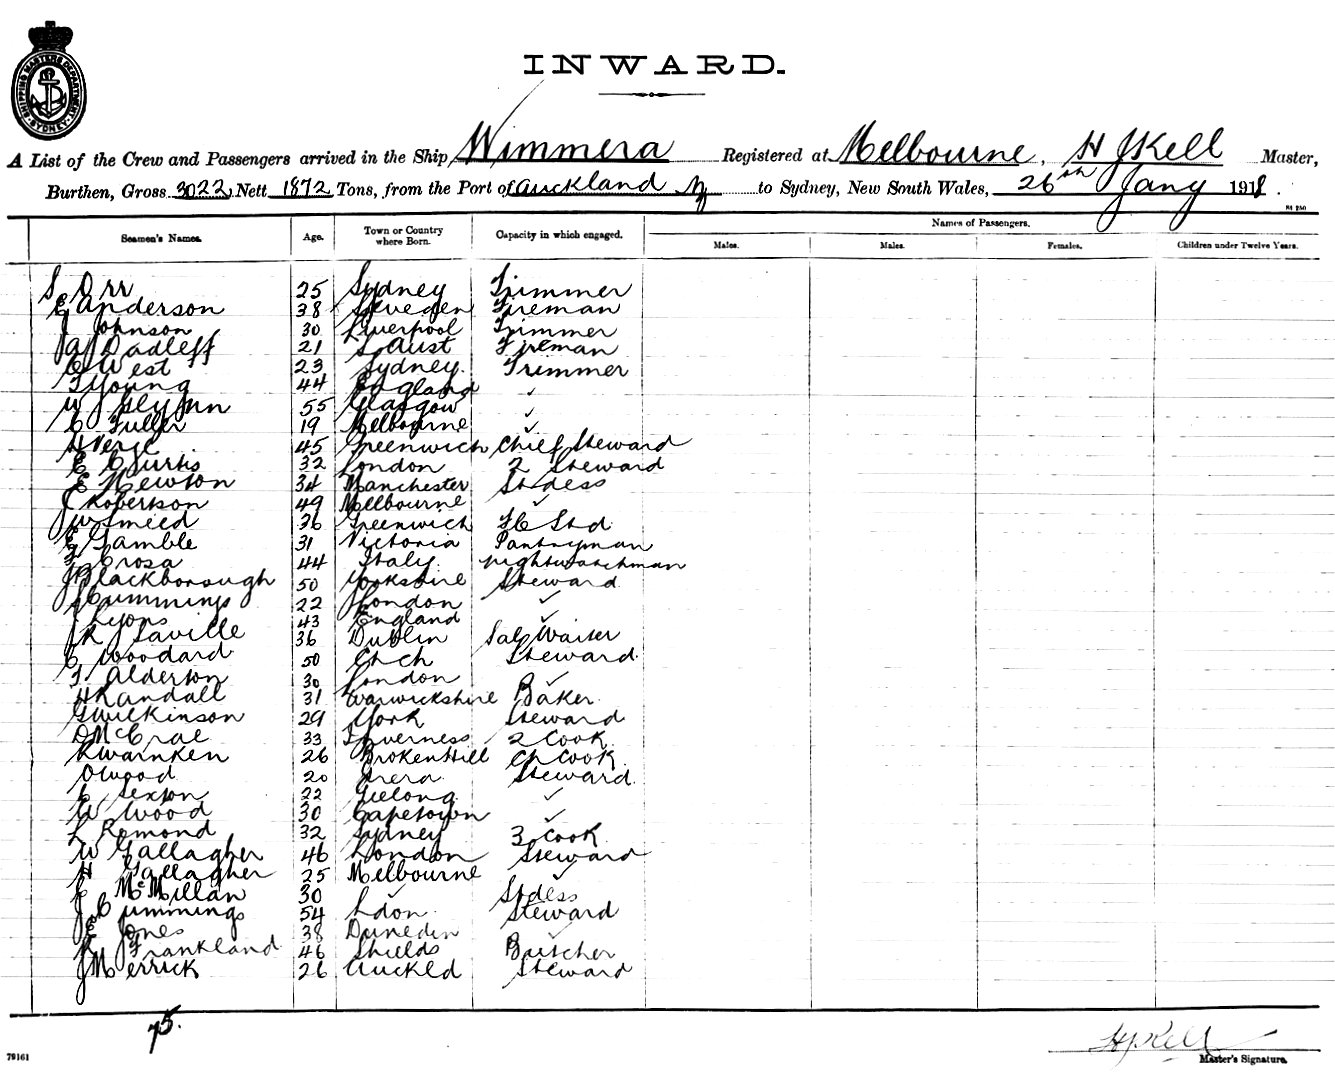 SHIPPING MASTERS DEPARTMENT SYDNEY
INWARD.
A List of the Crew and Passengers arrived in the Ship Wimmera Registered at Melbourne, H J Kell Master,
Burthen, Gross 3022 Nett 1872 Tons, from the Port of Auckland NZ to Sydney, New South Wales, 26th Jany 1918.
Names of Passengers.
Seamen's Names. Age. Town or Country where Born. Capacity in which engaged. Males. Males. Females. Children under Twelve Years.
S Orr 25 Sydney Trimmer
E Anderson 38 Sweden Fireman
J Johnson 30 Liverpool Trimmer
A Dadleff 21 S Aust Fireman
C West 23 Sydney Trimmer
F Young 44 England ✓
W J Glynn 55 Glasgow ✓
C Fuller 19 Melbourne ✓
H Verge 45 Greenwich Chief Steward
E Curtis 32 London 2 Steward
E Newton 34 Manchester Stdess
J Robertson 49 Melbourne ✓
J W Smeed 36 Greenwich Std
E Gamble 31 Victoria Pantryman
F Crosa 44 Italy nightwatchman
J Blackborough 50 Yorkshire Steward
J Cummings 22 London ✓
J Lyons 43 England ✓
J R J Saville 36 Dublin Sal Waiter
C Woodard 50 Ch ch Steward
F Alderton 30 London ✓
H Randall 31 Warwickshire Baker
G Wilkinson 29 York Steward
D McCrae 33 Inverness 2 Cook
R Warnken 26 Broken Hill Ch Cook
O Wood 20 Steward
C Sexton 22 Geelong ✓
W Wood 30 Capetown ✓
L Remond 32 Sydney 3 Cook
W Gallagher 46 London Steward
H Gallagher 25 Melbourne ✓
C McMillan 30 ✓ Stdess
J Cummings 54 Ldon Steward
E Jones 38 Dunedin ✓
R Frankland 46 Shields Butcher
J Merrick 26 Auckld Steward
75.
H J Kell
79161 Master's Signature.